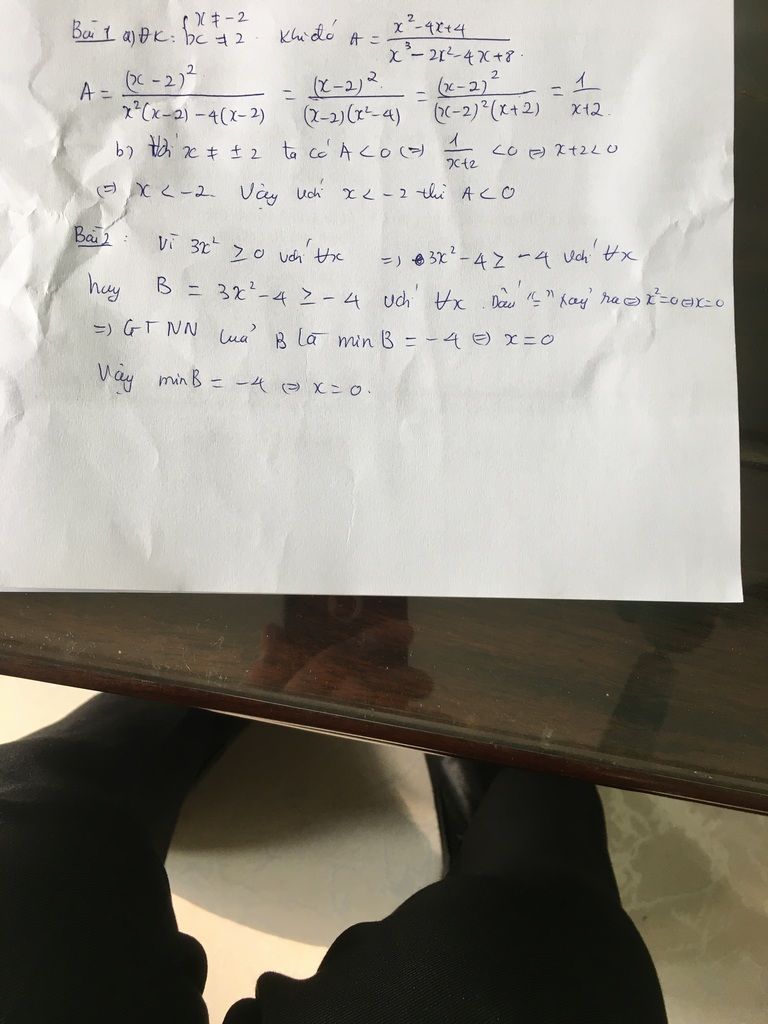 Bài 1 a) ĐK: { x ≠ -2 x ≠ 2. Khi đó A = (x² - 4x + 4)/(x³ - 2x² - 4x + 8).
A = (x - 2)²/(x²(x-2) - 4(x-2)) = (x-2)²/((x-2)(x²-4)) = (x-2)²/((x-2)²(x+2)) = 1/(x+2).
b) Với x ≠ ±2 ta có A < 0 (=) 1/(x+2) < 0 (=) x+2 < 0
(=) x < -2. Vậy với x < -2 thì A < 0
Bài 2: Vì 3x² ≥ 0 với ∀x =) 3x² - 4 ≥ -4 với ∀x
hay B = 3x² - 4 ≥ -4 với ∀x. Dấu "=" xảy ra (=) x² = 0 (=) x = 0
=) GTNN của B là min B = -4 (=) x = 0
Vậy min B = -4 (=) x = 0.